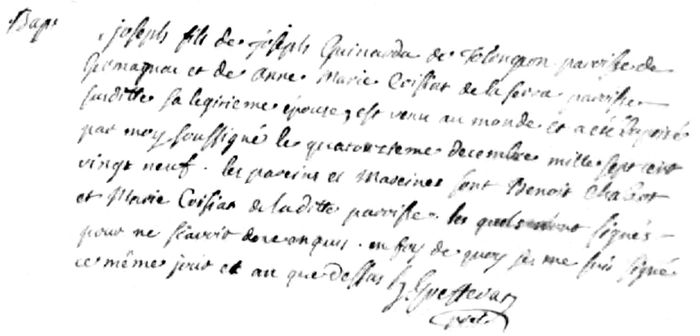 Bap.
Joseph fils de Joseph Guinarda de Tolongeon paroisse de
Germagnat et de Anne Marie Croissiat de la serra paroisse
susditte sa legitieme épouse, est venu au monde et a été baptisé
par moy soussigné le quatorzieme decembre mille sept cent
vingt neuf. les pareins et Mareines sont Benoit Chabot
et Marie de laditte paroisse. les quels n'ont signés
pour ne scavoir de ce enquis. en foy de quoy je me suis signé
ce même jour et an que dessus